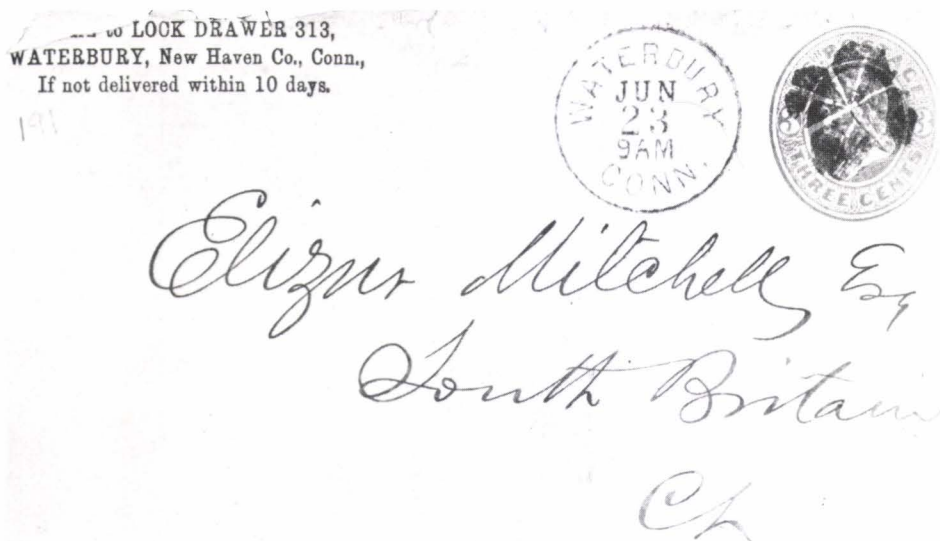 to LOCK DRAWER 313,
WATERBURY, New Haven Co., Conn.,
If not delivered within 10 days.
191
WATERBURY
JUN
23
9AM
CONN.
POSTAGE
THREE CENTS
Elizur Mitchell, Esq
South Britain
Ct